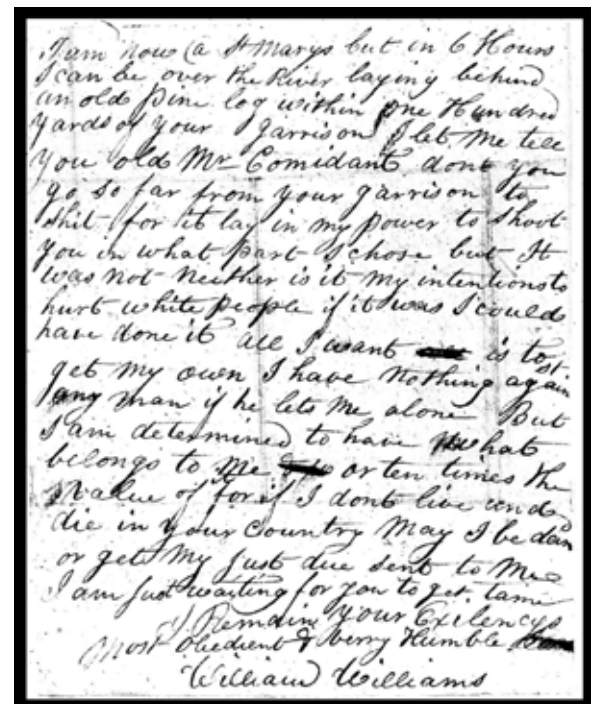 I am now (a St Marys but in 6 Hours
I can be over the River laying behind
an old pine log within one Hundred
yards of your garrison I let me tell
you old Mr Comidant dont you
go so far from your garrison to
shit for it lay in my power to shoot
you in what part I chose but It
was not neither is it my intentions to
hurt white people if it was I could
have done it all I want is to
get my own I have nothing against
any man if he lets me alone But
I am determined to have what
belongs to me or ten times the
value of it for if I dont live and
die in your Country May I be dam
or get My just due sent to Me
I am just waiting for you to get tame
I Remain your Exilencys
Most obedient & verry Humble
William Williams